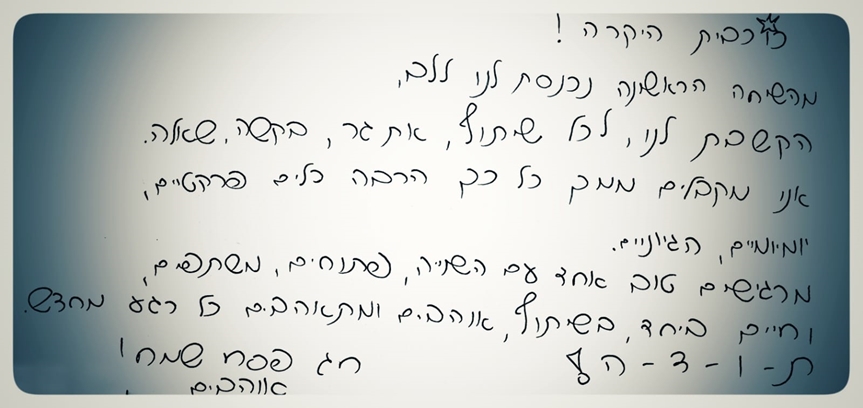 כוכבית היקרה!
מהשיחה הראשונה נכנסת לנו ללב,
הקשבת לנו, לכל שיתוף, אתגר, בקשה, שאלה.
אנו מקבלים ממך כל כך הרבה כלים פרקטיים,
יומיומיים, הגיוניים.
מרגישים טוב אחד עם השנייה, פתוחים, משתפים,
וחיים ביחד, בשיתוף, אוהבים ומתאהבים כל רגע מחדש.
ת-ו-ד-ה
חג פסח שמח!
אוהבים